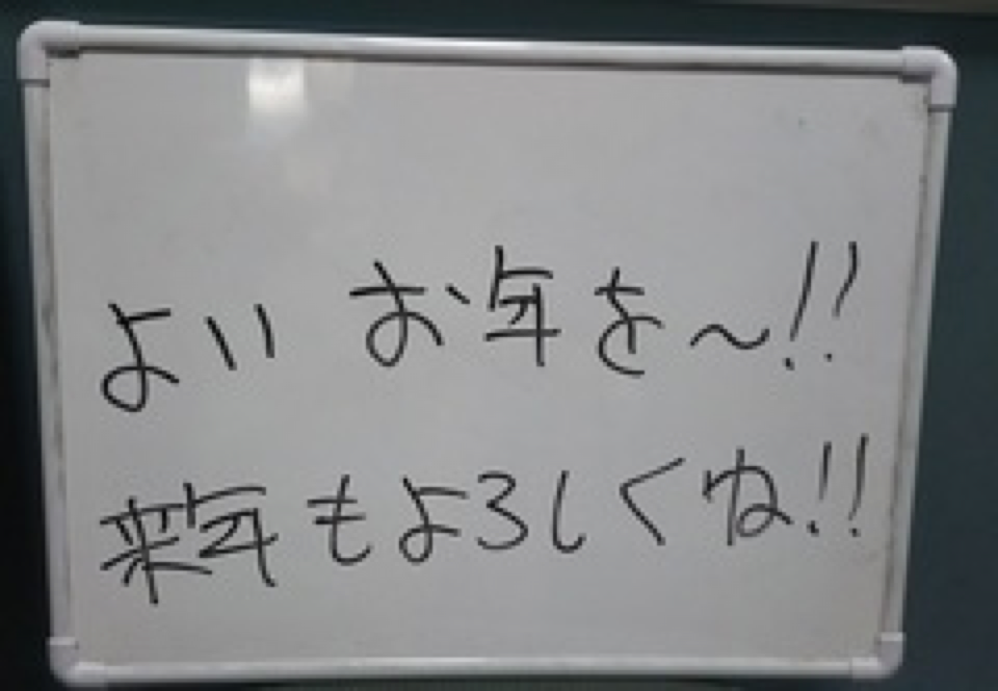 よい お年を〜!!
来年もよろしくね!!